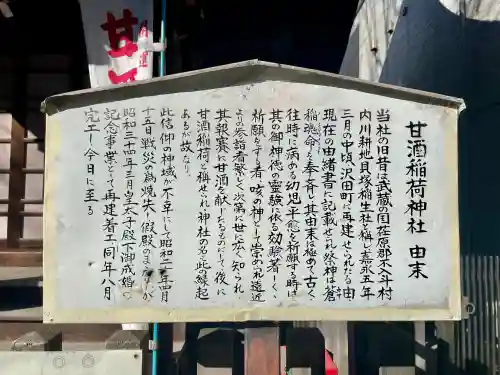 甘酒稲荷神社 由来
当社の旧昔は武蔵の国荏原郡入斗村
内川耕地貝塚稲生社と称し嘉永五年
三月の中頃沢田町に再建せられたる由
現在の由緒書に記載せられ祭神は蒼
稲魂命を奉斉し其由来は極めて古く
往時に病める幼児平癒を祈願する時は
其の御神徳の霊験依る効験著しく
祈願をする者 咳の神として崇のれ遠近
より参詣者繁しく次第に世に広く知られ
其報賽に甘酒を献じたるものにして 後に
甘酒稲荷と称せられ神社の名の此の縁起
あるが故なり
此信仰の神域が不幸にして昭和二十年四月
十五日戦災の為焼失し假殿のまゝなりしが
昭和三十四年三月皇太子殿下御成婚の
記念事業として再建着工同年八月
完工し今日に至る
甘